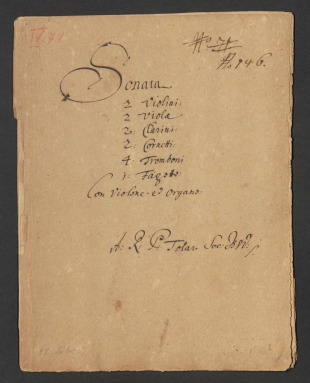 No 71
No. 146.
Sonata
2 Violini.
2 Viola
2. Clarini.
2. Cornetti.
4. Tromboni
1. Fagoto.
Con Violone. e Organo
A: R. P. Tolar. Soc: